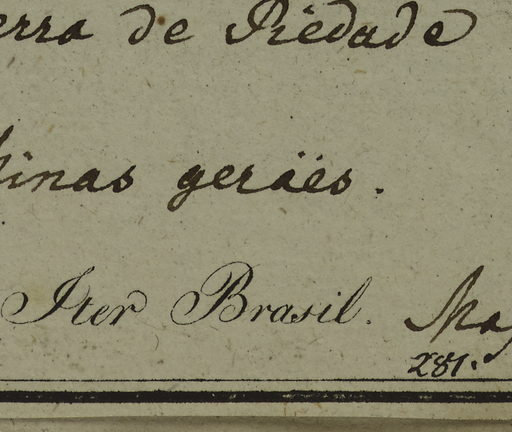 erra de Piedade
inas geraës.
Iter Brasil. Ma
281.